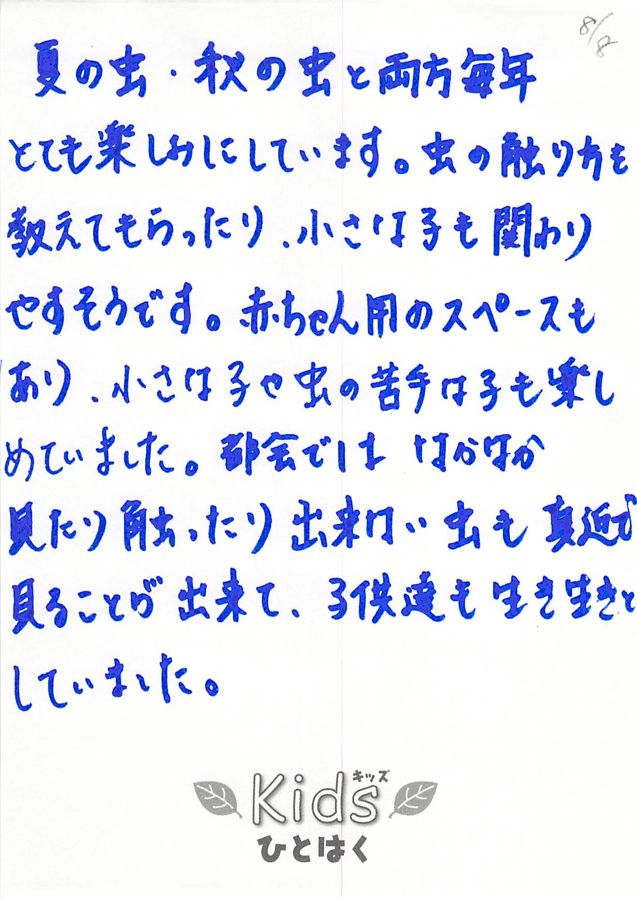 8/8
夏の虫・秋の虫と両方毎年
とても楽しみにしています。虫の触り方も
教えてもらったり、小さな子も関わり
やすそうです。赤ちゃん用のスペースも
あり、小さな子や虫の苦手な子も楽し
めていました。都会では なかなか
見たり触ったり出来ない虫も真近で
見ることが出来て、子供達も生き生きと
していました。
キッズ
Kids
ひとはく